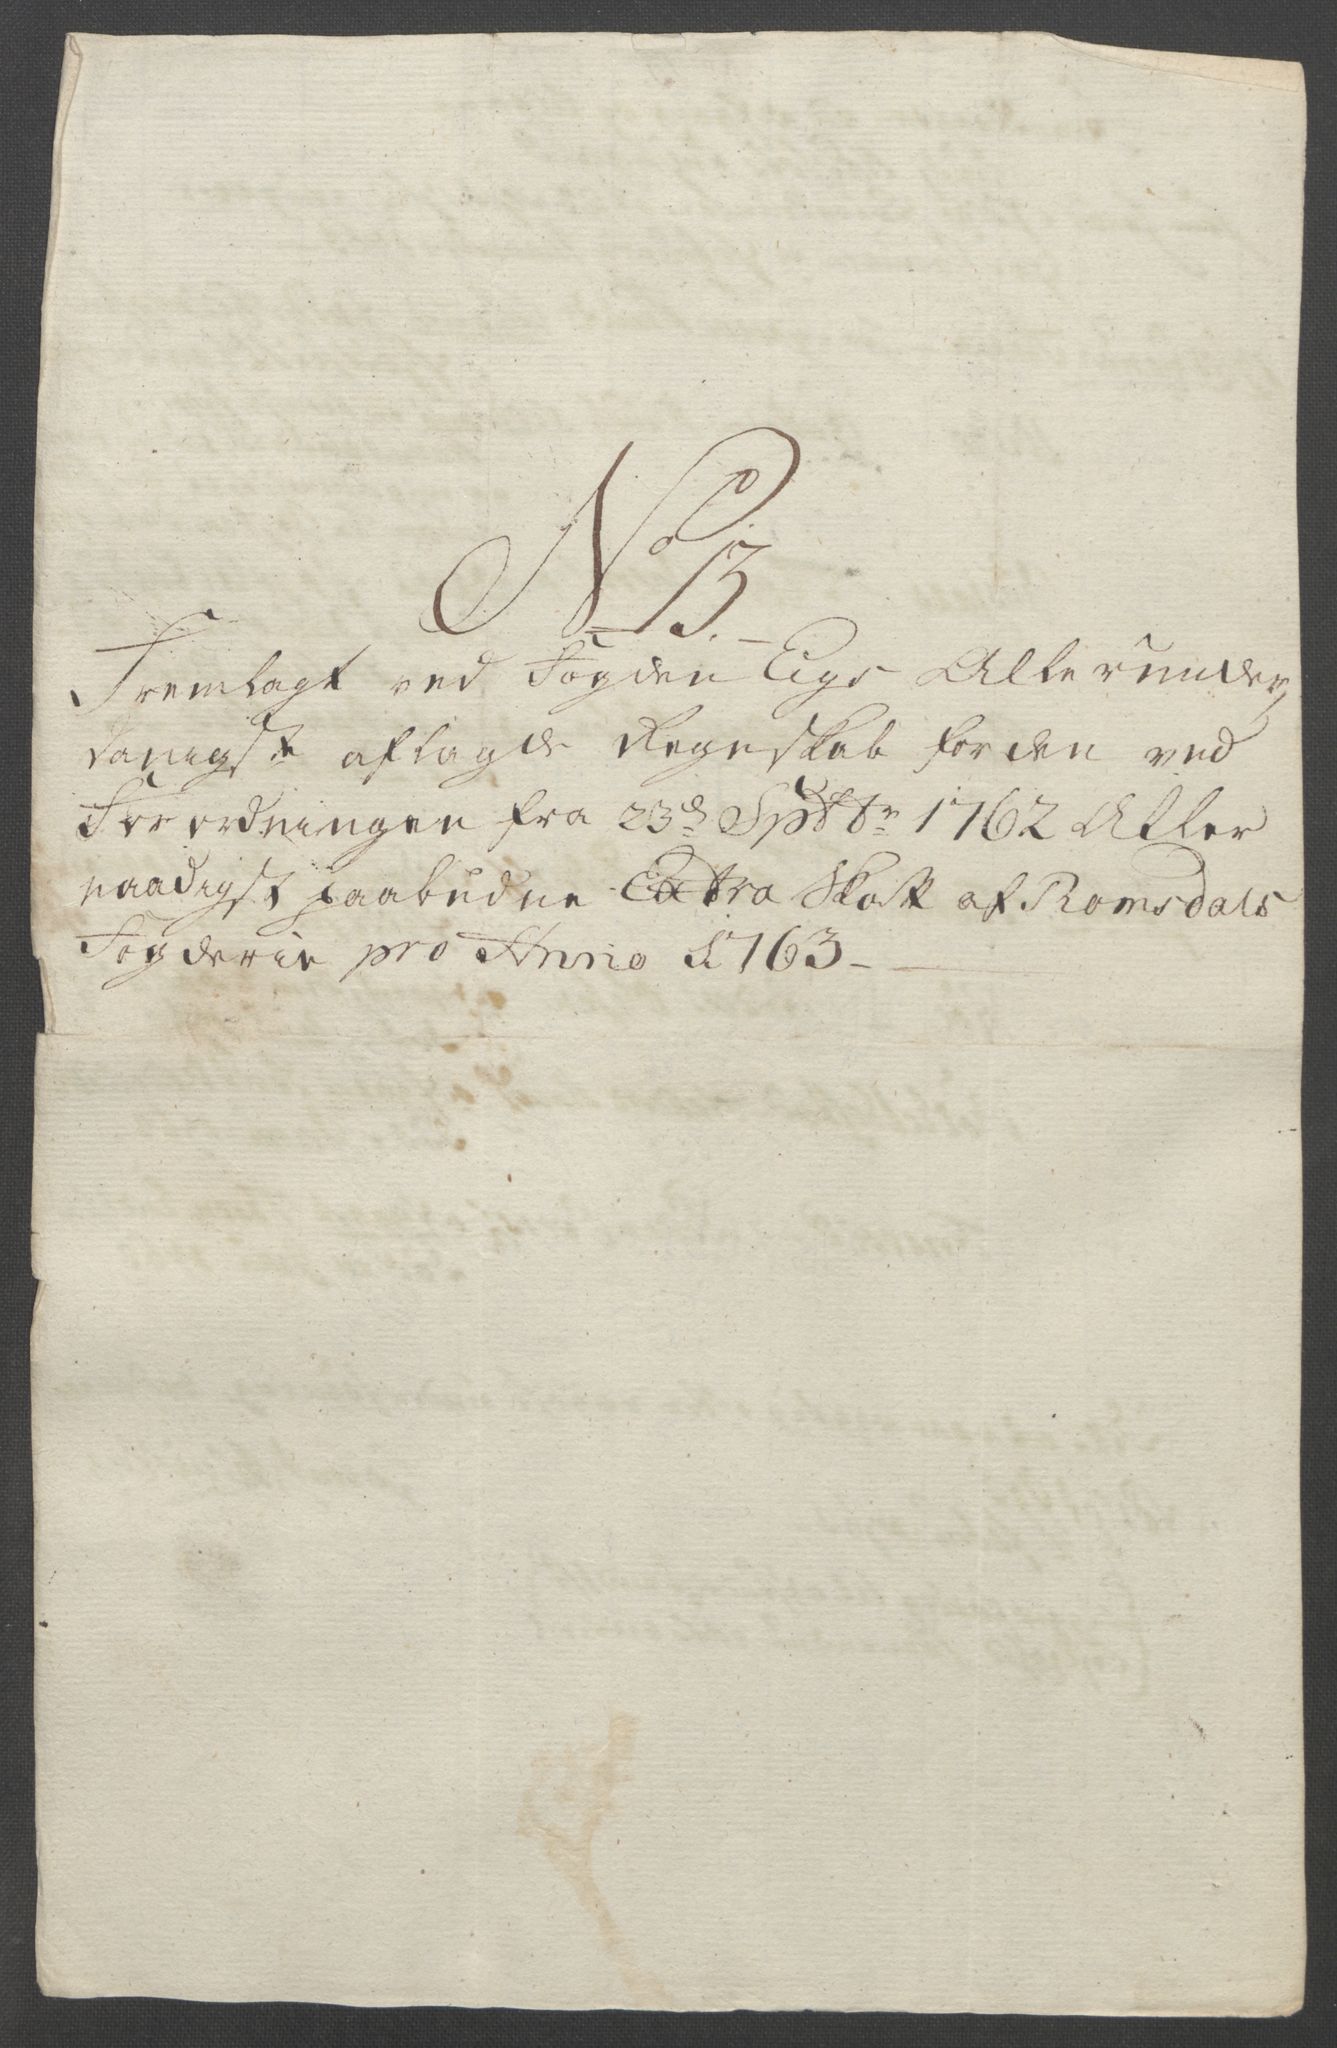 No 13.
Fremlagt ved Fogden Eigs Allerunder
danigst aflagde Regnskab for den ved
Forordningen fra 23d Septbr 1762 Aller
naadigst paabudne Extra Skatt af Romsdals
Fogderie pro Anno 1763